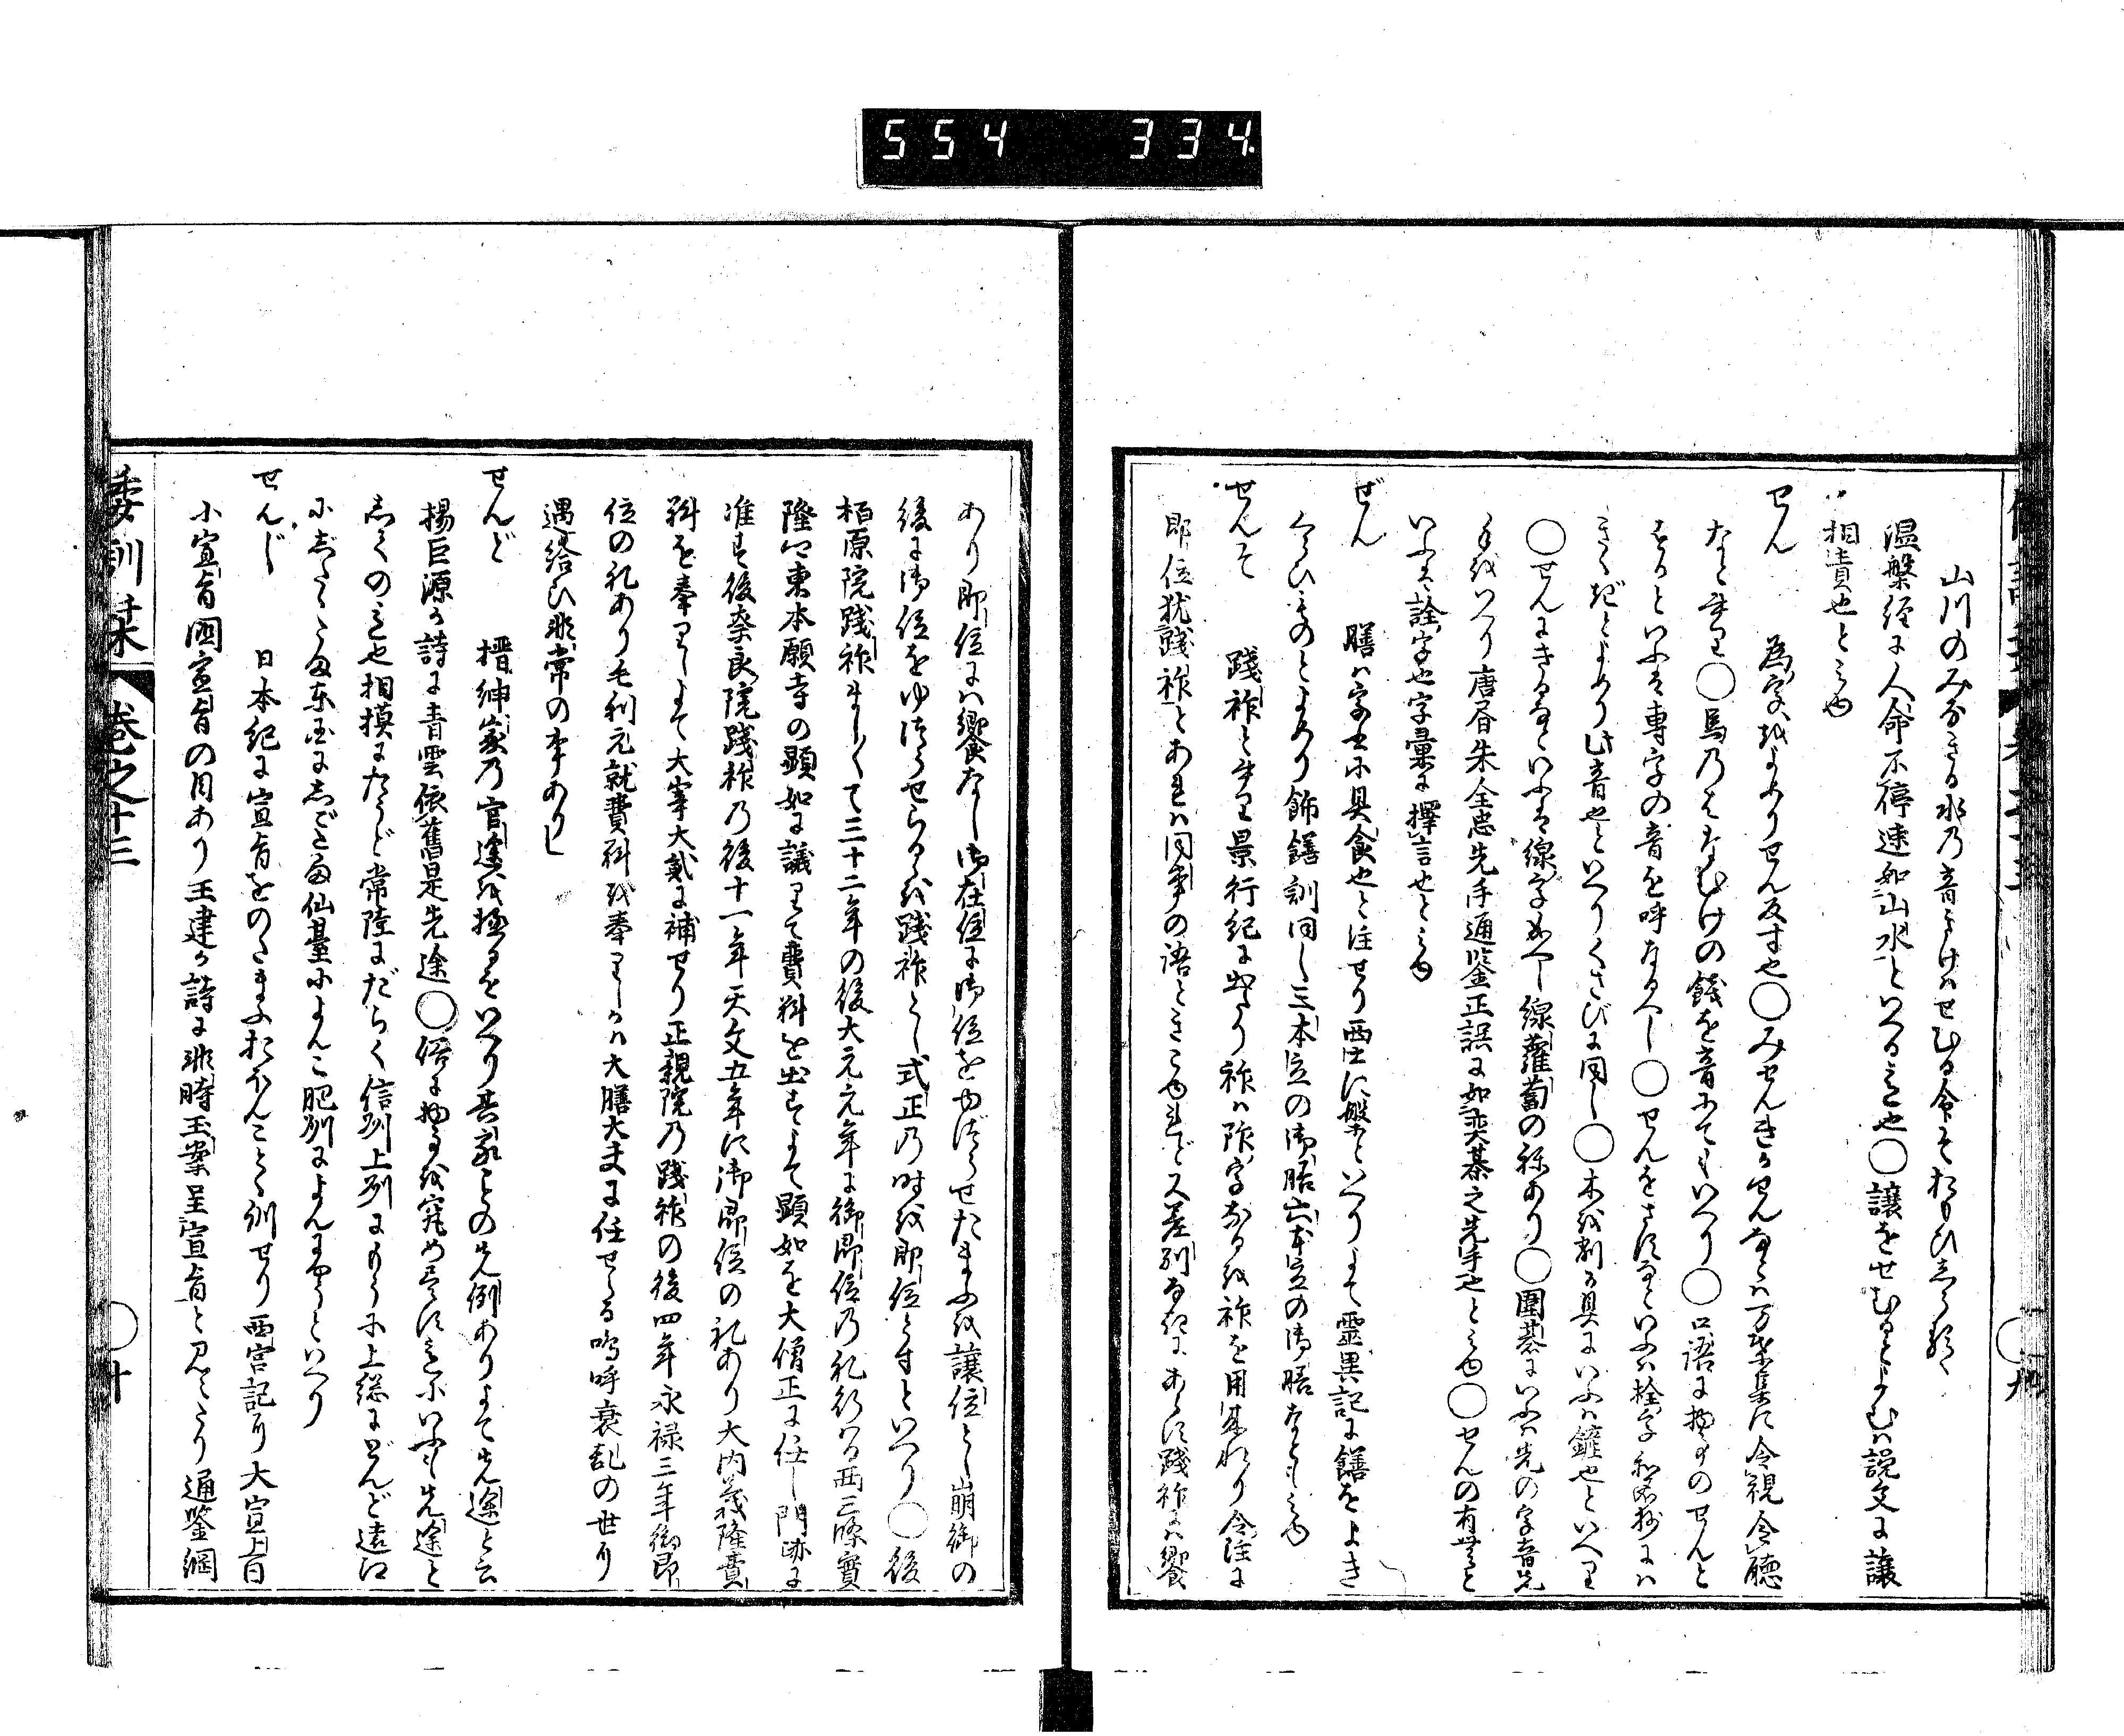 554 334
山川のみなきる水乃音きけはせむる命そおもひしらるゝ
温槃経に人命不停速如山水といへる意也〇譲をせむるとよむは説文に譲
ハ相責也と見ゆ
せん 為字をよめりせん反す也〇みせんきかせんなとハ万葉集に令視令聴
なと書り〇馬乃はなむけの餞を音にてもいへり〇口語に物事のせんと
するといふは専字の音を呼なるへし〇せんをさすなといふハ栓字和名抄にハ
きくぎとよめり此音也といへりくさびに同し〇木を削る具にいふハ鏟也といへり
〇せんにきるなといふは線字なるへし線蘿蔔の称あり〇囲碁にいふハ先の字音先
手をいへり唐昏朱全忠先手通鑒正誤に如奕棊之先手也と見ゆ〇せんの有無と
いふは詮字也字彙に擇言也と見ゆ
ぜん 膳ハ字書に具食也と注せり西土に槃といへりよて霊異記に饍をよき
くらひものとよめり飾饍訓同し三本立の御膳六本立の御膳なとも見ゆ
せんそ 踐祚と書り景行紀に出たり祚ハ阼字なるを祚を用来れり令注に
即位犹践祚とあれハ同事の語ときこゆれど又差別なきにあらす践祚にハ饗
あり即位にハ饗なし御在位に御位をゆづらせたまふを譲位とし崩御の
後に御位をゆづらせらるゝを践祚とし式正乃時を即位と申すといへり〇後
栢原院践祚ましくて三十二年の後大元元年に御即位乃礼行はる西三條實
隆公東本願寺の顕如に議りて費料を出さすよて顕如を大僧正に任し門跡に
准す後奈良院踐祚乃後十一年天文五年に御即位の礼あり大内義隆費
料を奉りしよて大宰大貳に補せり正親院乃踐祚の後四年永禄三年御即
位の礼あり毛利元就費料を奉りしかハ大膳大夫に任せらる嗚呼衰乱の世に
遇給ひ非常の事ありし
せんど 搢紳家乃官途を極るをいへり其家々の先例ありよて先途と云
楊巨源か詩に青雲依舊是先途〇俗に物事を究め尽す意にいふも先途と
しくの意也相摸にたうど常陸にだらく信州上州にもうに上総にどんど遠江
にしたゝか東国にしでたか仙臺によんこ肥州によんにやうといへり
せんじ 日本紀に宣旨をのたまふおほんことゝ訓せり西宮記に大宣旨
小宣旨國宣旨の目あり王建か詩に非時玉案呈宣旨と見えたり通鑒綱
倭訓栞 巻之十三 〇十